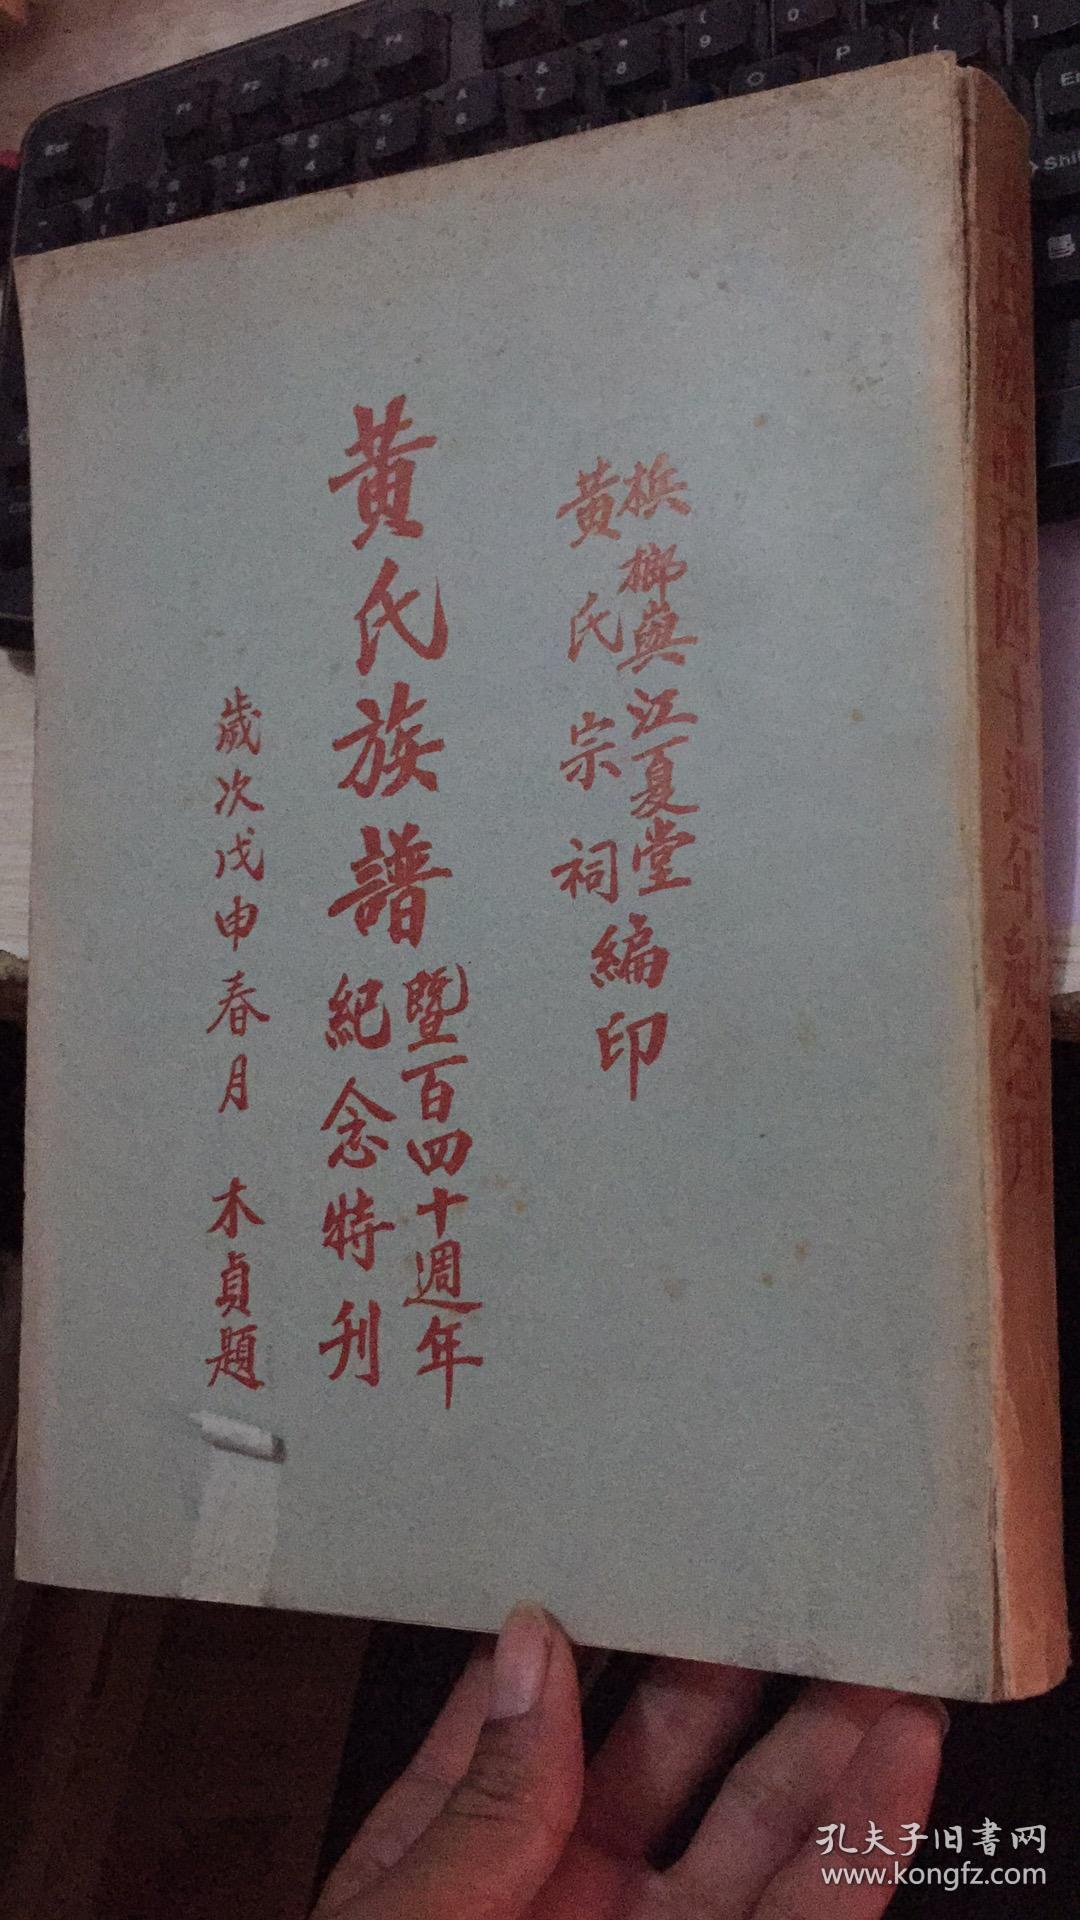 檳榔嶼江夏堂
黃氏宗祠
編印
黃氏族譜
暨一百四十週年
紀念特刊
歲次戊申春月 木貞題
Esc
F1
F2
F3
F4
Shift
孔夫子旧书网
www.kongfz.com